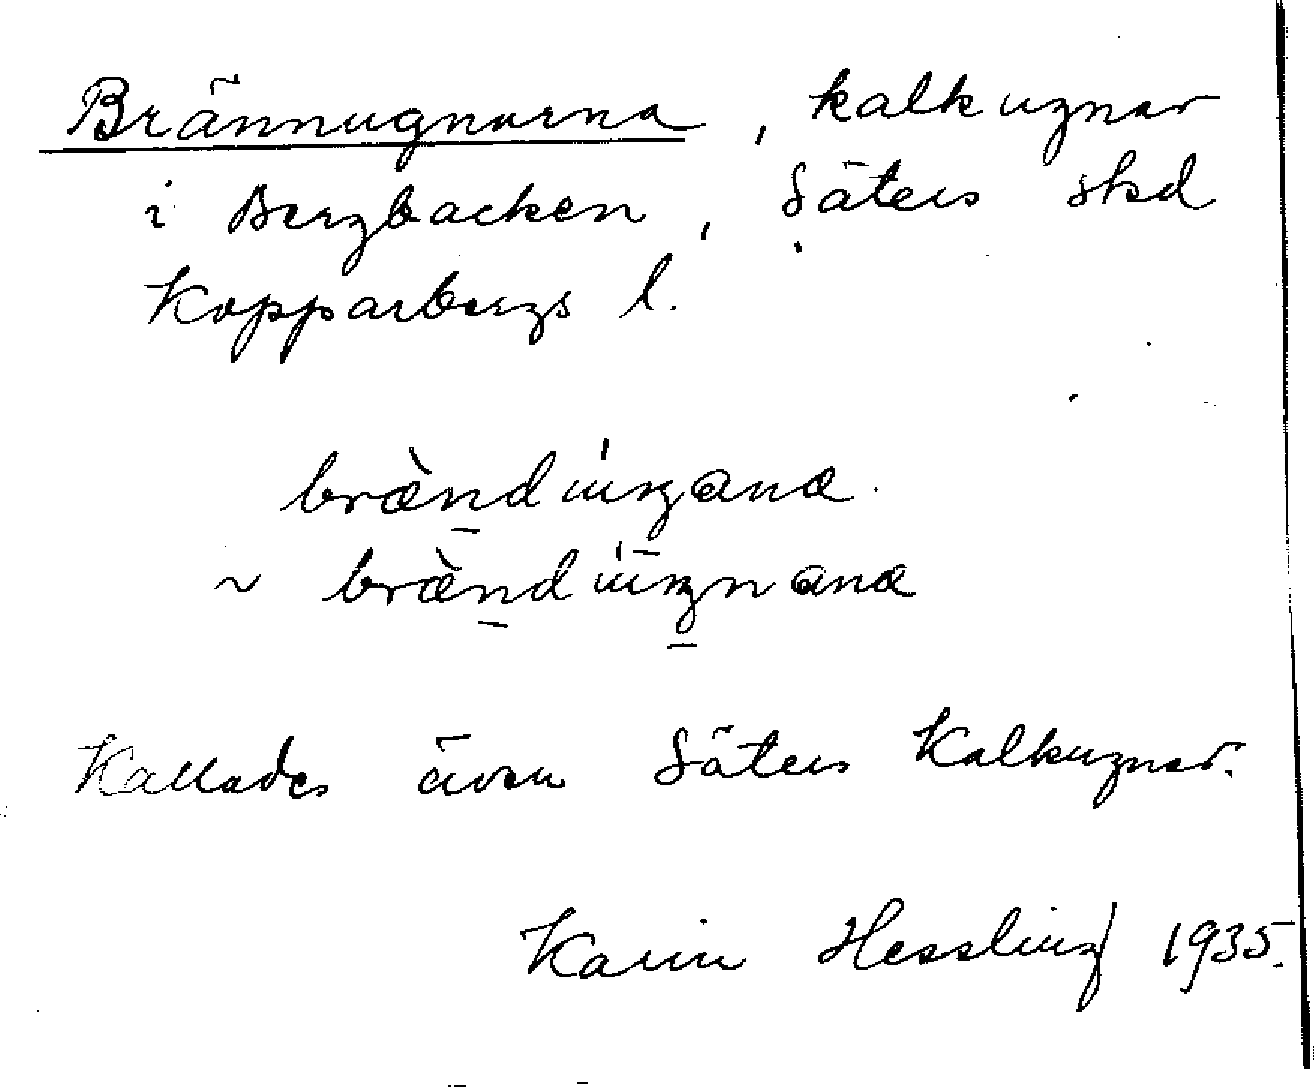 Brännugnarna, kalkugnar
i Bergbacken, Säters skd
Kopparbergs l.
Kallades även Säters Kalkugnar.
Karin Hessling 1935.